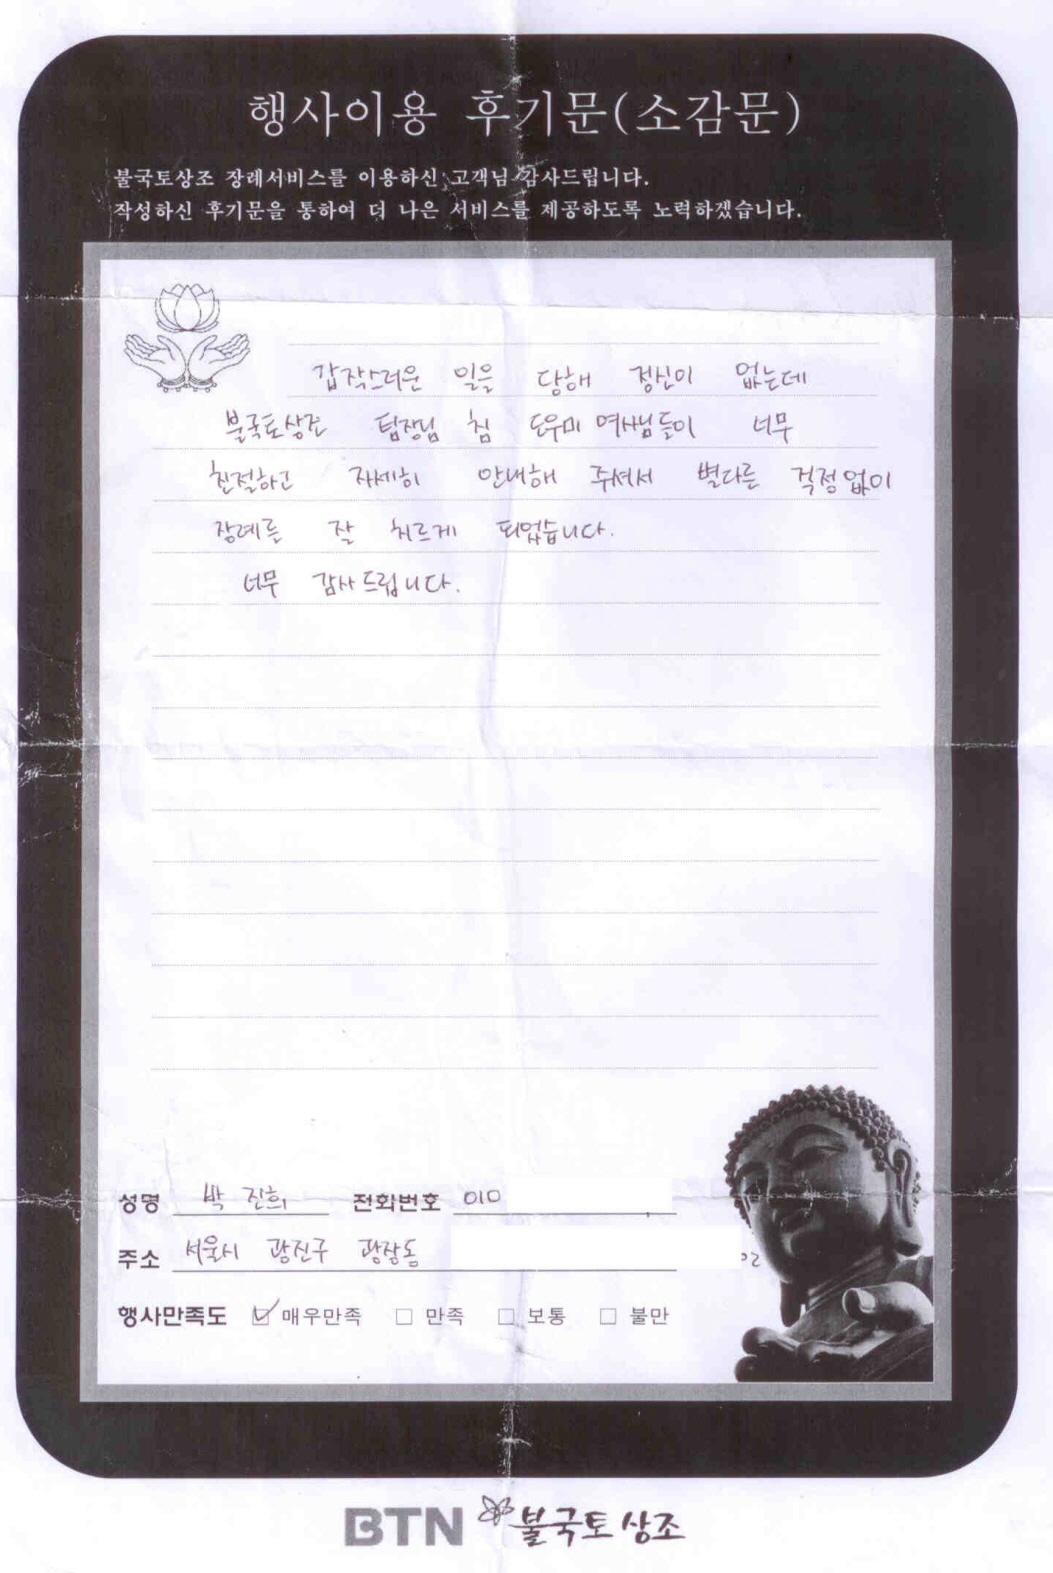 행사이용 후기문(소감문)
불국토상조 장례서비스를 이용하신 고객님 감사드립니다.
작성하신 후기문을 통하여 더 나은 서비스를 제공하도록 노력하겠습니다.
갑작스러운 일을 당해 정신이 없는데
불국토상조 팀장님 침 도우미 여사님들이 너무
친절하고 자세히 안내해 주셔서 별다른 걱정없이
장례를 잘 치르게 되었습니다.
너무 감사드립니다.
성명 박진희 전화번호 010
주소 서울시 광진구 광장동 02
행사만족도 ☑ 매우만족 □ 만족 □ 보통 □ 불만
BTN 불국토상조